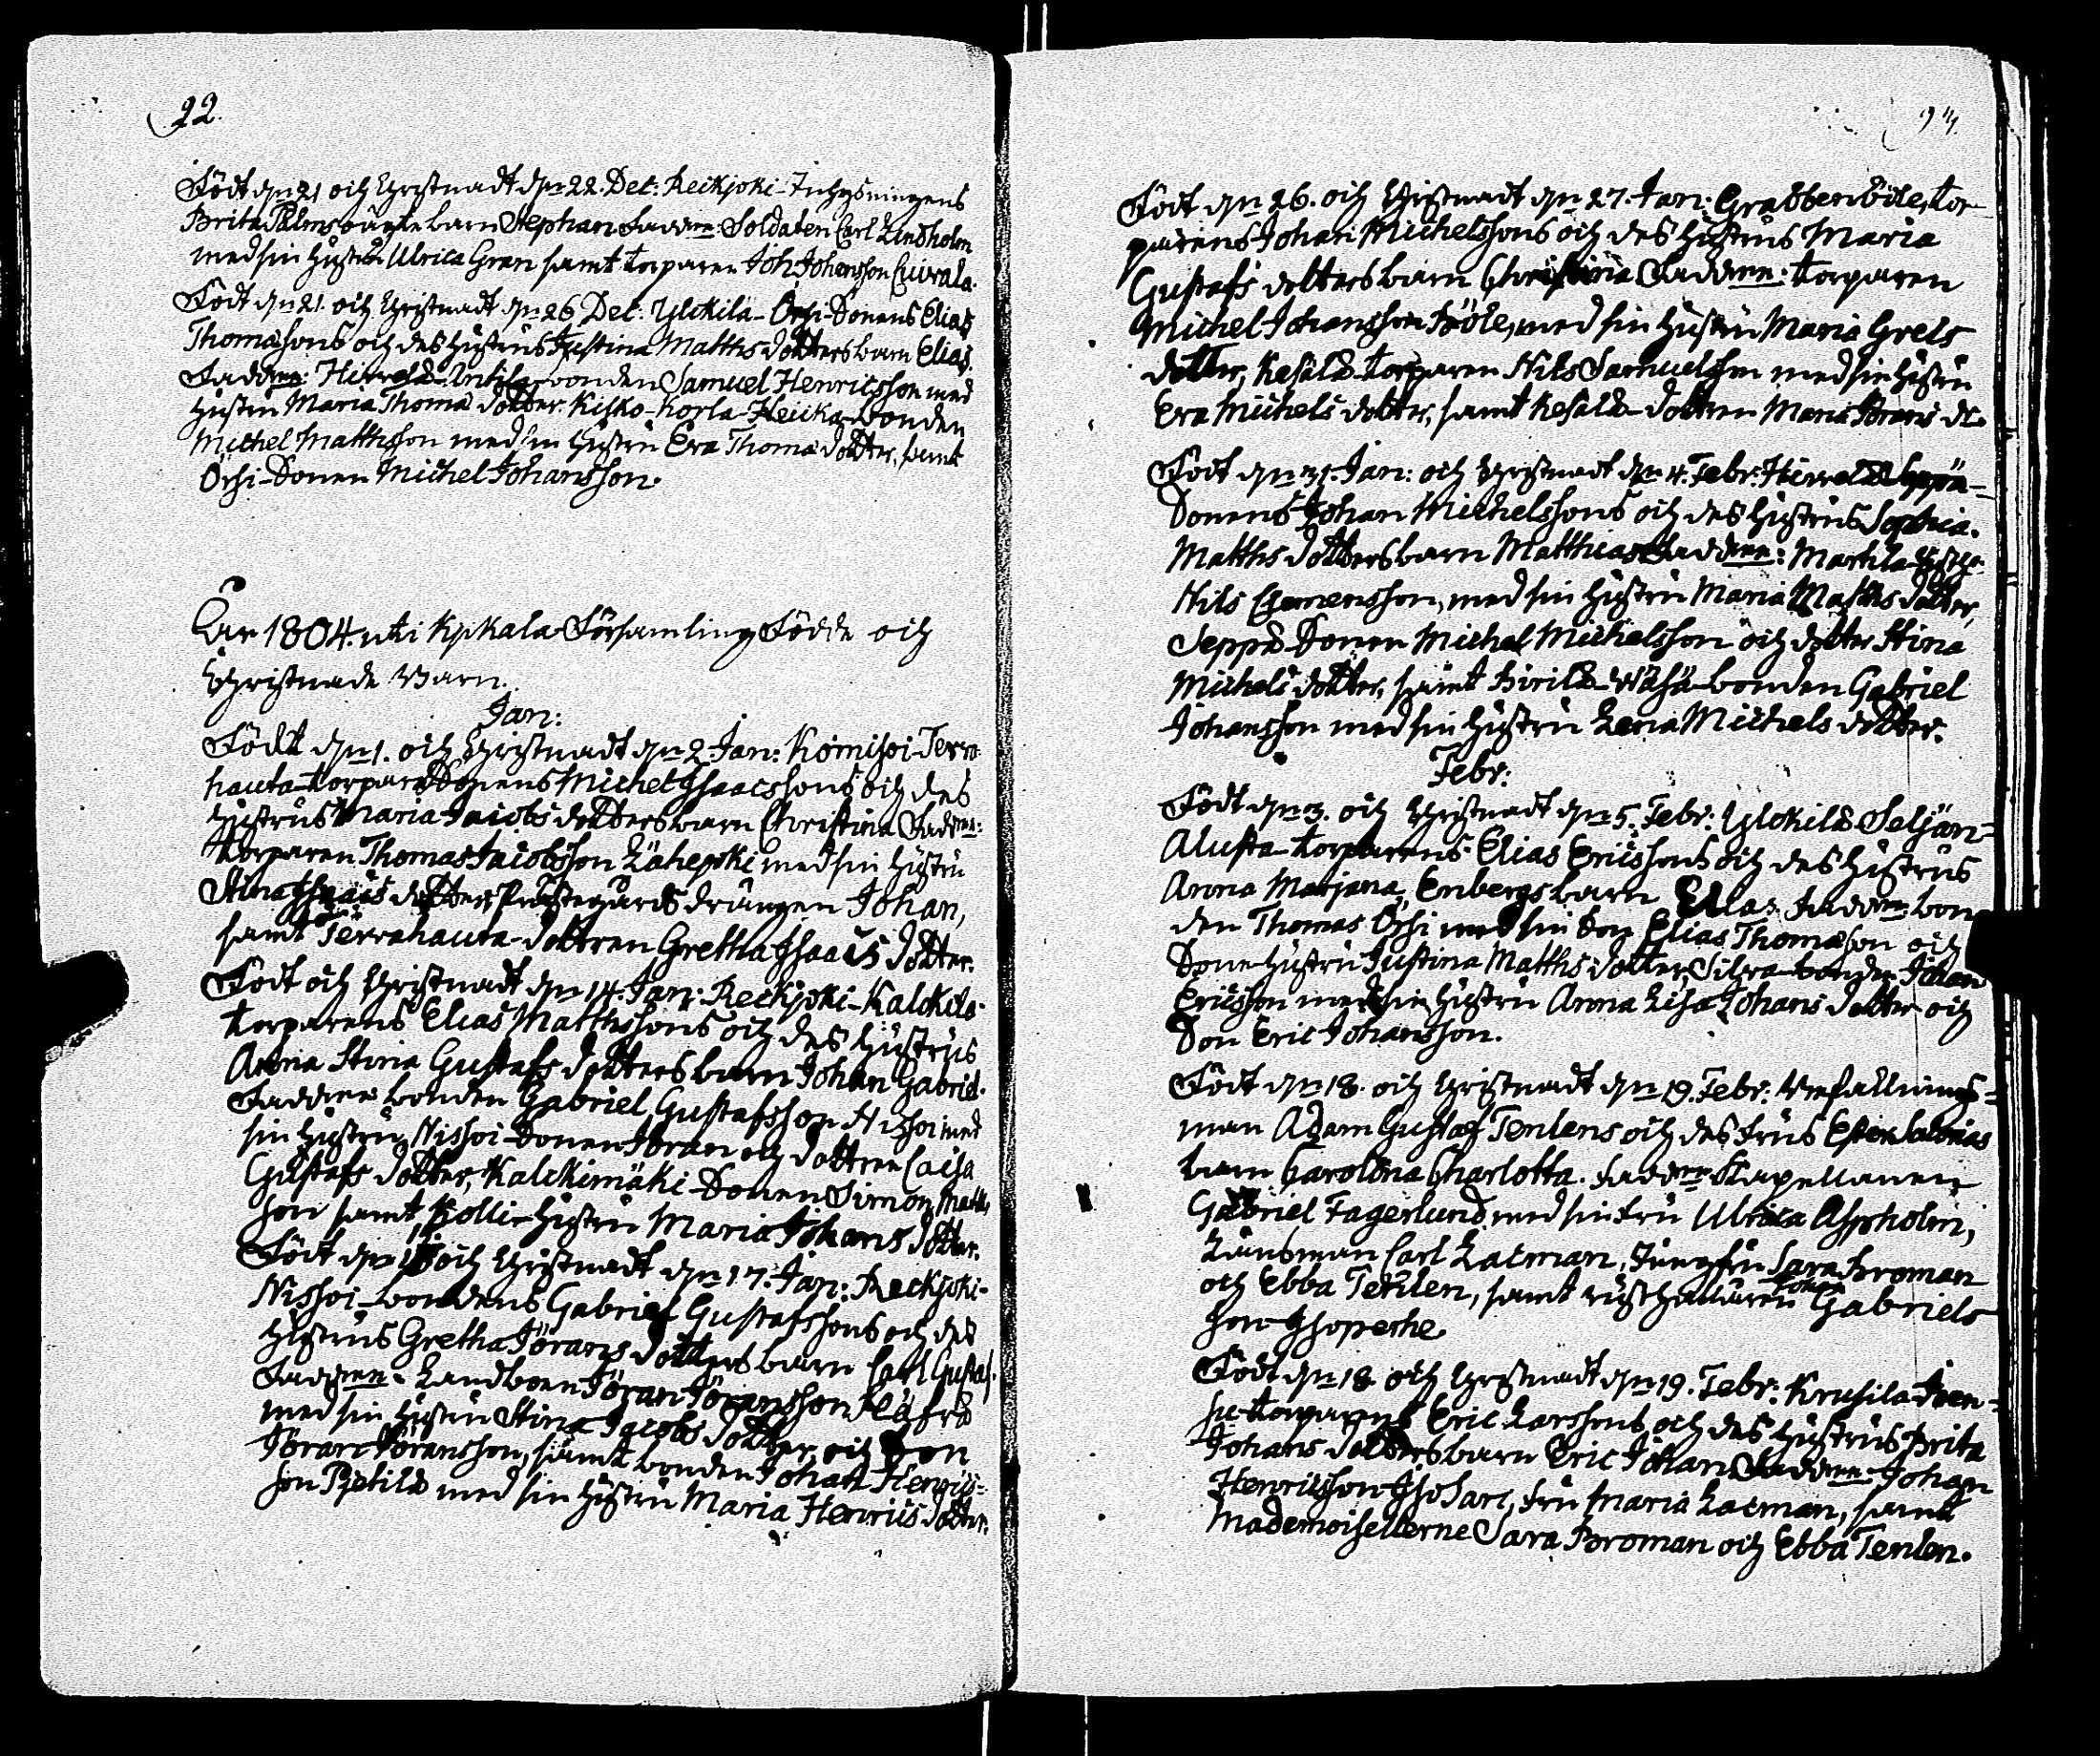 22.
Född d̄n 21 och Christnadt d̄n 22. Dec: Reckjoki-Inhysningens
Brita Palms oägta barn Stephan Faddr̄ne: Soldaten Carl Lindholm
med sin hustru Ulrica Gran samt torparen Joh: Johansson Cuirala.
Född d̄n 21. och Christnadt d̄n 26 Dec: Ylckilä-Orsi-Sonens Elias
Thomæsons och des hustrus Justina Matths dotters barn Elias.
Faddr̄ne: Hirvelä-Anttila-bonden Samuel Henricsson med
hustru Maria Thomæ dotter. Kisko-Korla-Heicka-bonden
Michel Mattsson med sin hustru Eva Thomæ dotter, samt
Orsi-Sonen Michel Johansson.
Åhr 1804. uti Kjkala Församling Födde och
Christnade Barn.
Jan:
Född d̄n 1. och Christnadt d̄n 2. Jan: Komisoi-Terva-
hauta-torpare Sonens Michel Isaacssons och des
hustrus Maria Jacobs dotters barn Christina Faddr̄ne:
torparen Thomas Jacobsson Lähepski med sin hustru
Stina Isaacs dotter, Prästegårds drängen Johan,
samt Tervahauta-dottren Gretha Isaacs dotter.
Född och Christnadt d̄n 14. Jan: Reckjoki-Kalckila-
torparens Elias Matthssons och des hustrus
Anna Stina Gustafs dotters barn Johan Gabriel.
Faddr̄ne bonden Gabriel Gustafsson Nissoi med
sin hustru, Nissoi-Sonen Jöran och dottren Caisa
Gustafs dotter, Kalckimäki-Sonen Simon Matts
son samt Kolli-hustru Maria Johans dotter.
Född d̄n och Christnadt d̄n 17. Jan: Reckjoki-
Nissoi-bondens Gabriel Gustafssons och des
hustrus Gretha Jörans dotters barn Carl Gustaf.
Faddr̄ne: Landboen Jöran Jöransson
med sin hustru Stina Jacobs dotter, och Son
Jöran Jöransson, samt bonden Johan Henrics-
son Pjetilä med sin hustru Maria Henrics dotter.
Född d̄n 26. och Christnadt d̄n 27. Jan: Grabbenböle, tor-
parens Johan Michelssons och des hustrus Maria
Gustafs dotters barn Christina Faddr̄ne: torparen
Michel Johansson Böle, med sin hustru Maria Grels
dotter, Kesälä-torparen Nils Samuelsson med sin hustru
Eva Michels dotter, samt Kesälä-dottren Maria Jörans dr.
Född d̄n 31. Jan: och Christnadt d̄n 4. Febr: Hirvelä Seppä-
Sonens Johan Michelssons och des hustrus Sophia
Matths dotters barn Matthias Faddr̄ne: Martila
Nils Clemensson, med sin hustru Maria Matths dotter,
Seppä-Sonen Michel Michelsson och dotter Stina
Michels dotter, samt Birilä-Wähä-bonden Gabriel
Johansson med sin hustru Lena Michels dotter.
Febr:
Född d̄n 3. och Christnadt d̄n 5. Febr: Ylckilä Seljän-
Alusta-torparens Elias Ericssons och des hustrus
Anna Marjana, Enbergs barn Elias. Faddr̄ne bon-
den Thomas Orsi med sin Son Elias Thomæson och
Sone-hustru Justina Matths dotter, Silva-bonden Johan
Ericsson med sin hustru Anna Lisa Johans dotter och
Son Eric Johansson.
Född d̄n 18. och Christnadt d̄n 19. Febr: Befallnings-
man Adam Gustaf Tenlens och des frus
barn Carolina Charlotta. Faddr̄ne Kapellanen
Gabriel Fagerlund med sin fru Ulrica Aspholm,
Länsman Carl Lacman, Jungfru Sara Broman
och Ebba Tenlen, samt rusthållaren Johan Gabriels-
son Isoperhe.
Född d̄n 18. och Christnadt d̄n 19. Febr: Krusila Iven-
su-torparens Eric Larssons och des hustrus Brita
Johans dotters barn Eric Johan Faddr̄ne: Johan
Henricsson Isosari, fru Maria Lacman, samt
Mademoisellerne Sara Broman och Ebba Tenlen.